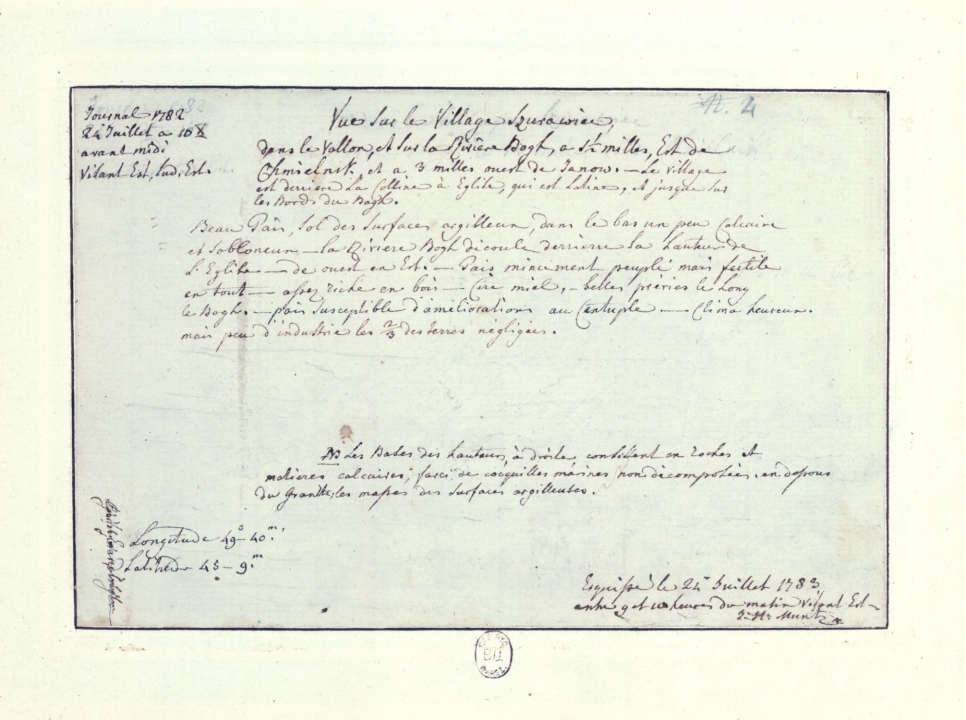 Journal 1782
24 Juillet a 10
avant midi
Visant Est, Sud, Est.
N. 4
Vue Sur le Village Szurawiec,
dans le Vallon, et Sur la Rivière Bogh, a 5½ milles, Est de
Chmielnik, et a 3 milles ouest de Janow. — Le Village
est derriere La Colline à Eglise, qui est Latine, et jusque sur
les Bords du Bogh.
Beau Païs, Sol des Surfaces argilleux, dans le bas un peu Calcaire
et Sabloneux — la Riviere Bogh découle derrierre la hauteur de
l'Eglise — de ouest en Est. — Païs mincement peuplé mais fertile
en tout — assez riche en bois — Cire miel, — belles preries le long
le Bogh. — païs Susceptible d'améliorations au Centuple — Clima heureux.
mais peu d'industrie les ⅔ des terres négligées.
NB Les Bases des hauteurs à droite consistent en roches et
matieres calcaires, farci de coequilles marines non décomposées, en dessous
du Granite, les masses des Surfaces argilleuses.
Longitude 49° – 40.m
Latitude 45 – 9.m
Esquissé le 24 Juillet 1783
entre 9 et 10 heures du matin Visant Est –
J. H. Muntz
B.U.